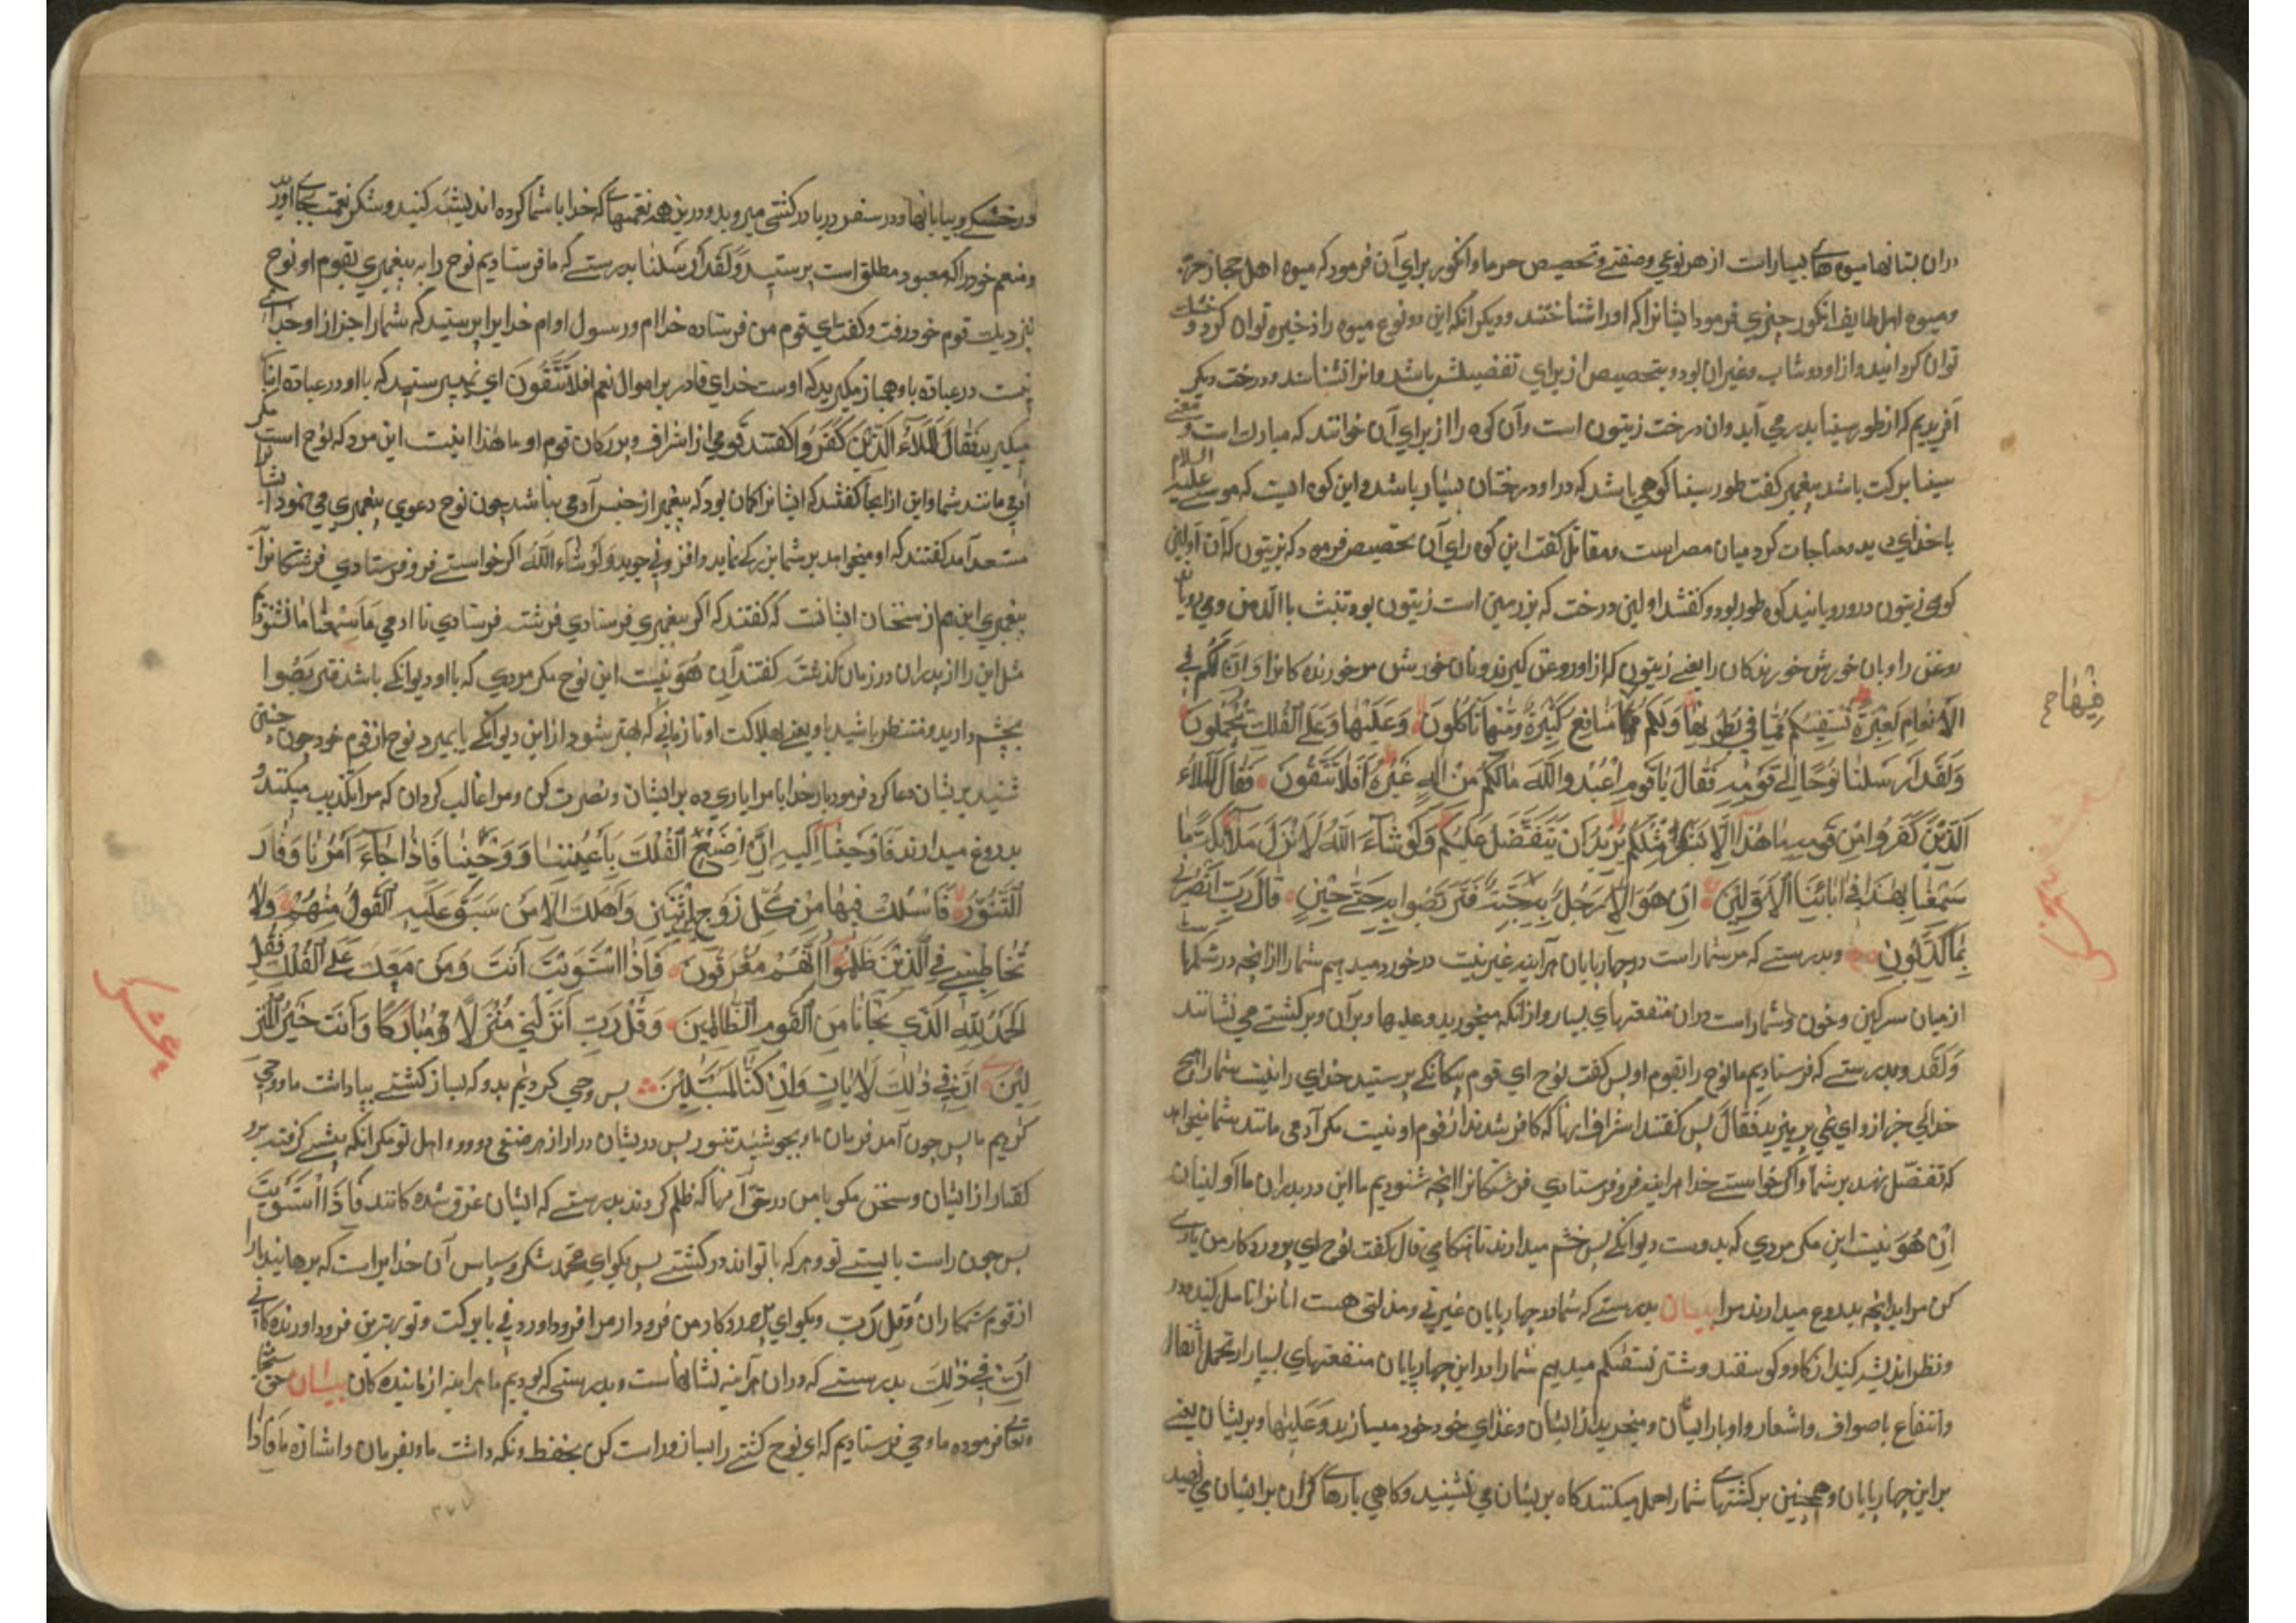 دران بستانها میوه هاے بسیار است از هر نوعی و صنفے و تخصیص خرما و انکور برای آن فرمود که میوه اهل حجاز خرما
و میوه اهل طایف انکور چیزی فرمود ایشانرا که اورا شناختند و دیکر انکه این دو نوع میوه را ذخیره توان کرد و خشک
توان کردانید و از او دوشاب و غیر ان بود و تخصیص از برای تفضیلش باشد و انرا نشناسند و درخت دیکر
آفریدیم که از طور سینا بدر می آید وان درخت زیتون است و آن کوه را از برای آن خوانند که مبارک است و معنے
سینا برکت باشد پیغمبر کفت طور سینا کوهی باشد که در او درختان بسیار باشد و این کوه انست که موسے علیه السلام
با خدای دید مناجات کرد میان مصر است و مقاتل کفت این کوه را برای آن تخصیص فرمود که زیتون کان اولین
کوهی زیتون درو رویانید کوه طور بود و کفتند اولین درخت که بر زمین است زیتون بود تنبت بالدهن و می رویاند
روغن را و نان خورش خورندکان را یعنے زیتون که از او روغن کیرند و نان خورش مر خورنده کانرا وَاِنَّ لَکُم فی
الأَنعامِ لَعِبرَةً نُسقِیکُم مِمّا فی بُطونِها وَلَکُم فیها مَنافِعُ کَثِیرَةٌ وَمِنها تَأکُلونَ وَعَلَیها وَعَلَی الفُلکِ تُحمَلونَ
فیهاح
وَلَقَد اَرسَلنا نوحًا اِلی قَومِهِ فَقالَ یا قَومِ اعبُدوا اللّهَ ما لَکُم مِن اِلهٍ غَیرُهُ اَفَلا تَتَّقونَ فَقالَ المَلَاءُ
الَّذینَ کَفَروا مِن قَومِهِ ما هذا اِلّا بَشَرٌ مِثلُکُم یُریدُ اَن یَتَفَضَّلَ عَلَیکُم وَلَو شاءَ اللّهُ لَاَنزَلَ مَلائِکَةً ما
سَمِعنا بِهذا فی ابائِنَا الاَوَّلینَ اِن هُوَ اِلّا رَجُلٌ بِهِ جِنَّةٌ فَتَرَبَّصوا بِهِ حَتّی حینٍ قالَ رَبِّ انصُرنی
بِما کَذَّبونِ و بدرستے که مر شما راست در چهار پایان هر آینه عبرتیست در خورد میدهیم شما را ازانچه در شکمها
از میان سرکین و خون و شما راست دران منفعتهای بسیار و ازانکه میخورید و علیها و بر آن و بر کشتے می نشانند
وَلَقَد و بدرستے که فرستادیم ما نوح را بقوم او پس کفت نوح ای قوم بیکانکے پرستید خدای را نیست شما را هیچ
خدائی جز از و ای نمی پرهیزید فَقالَ پس کفتند اشراف انها که کافر شدند از قوم او نیست مکر آدمی مانند شما میخواهد
که تفضّل نهد بر شما و اکر خواستے خدا هر اینه فرو فرستادی فرشتکانرا انچه شنودیم ما این در پدران ما اولینان
اِن هُوَ نیست این مکر مردی که بدوست دیوانکے پس چشم میدارند تا هنکامی قال کفت نوح ای پروردکار من یارے
کن مرا بدانچه بدروغ میدارند مرا بیان بدرستے که شما در چهار پایان عبرتی و مذلتی هست انانرا تامل کنید در
و نظر اندیشه کنید از کاو و کوسفند و شتر نسقیکم میدهیم شما را و در این چهار پایان منفعتهای بسیار از تحمل اثقال
و انتفاع باصواف و اشعار و اوبار ایشان و میخورید از ایشان و غذای خود خود میسازید وَعَلَیها و بر ایشان یعنے
بر این چهار پایان و همچنین بر کشتیهاے شما را حمل میکنند کاه بر ایشان می نشینید و کاهی بارهاے کران بر ایشان می نهید
در خشکے و بیابانها و در سفر دریا در کشتی میروید و در این همه نعمتهاے که خدا با شما کرده اندیشه کنید و شکر نعمت بجاے آورید
و منعم خود را که معبود مطلق است پرستید وَلَقَد اَرسَلنا بدرستے که ما فرستادیم نوح را به پیغمبری بقوم او نوح
نزدیک قوم خود رفت و کفت ای قوم من فرستاده خدا ام و رسول او ام خدایرا پرستید که شما را جز از او خداے
نیست در عبادة با و همباز مکیرید که اوست خدای قادر بر اموال نعم افلا تَتَّقُونَ ای نمی پرستید که با او در عبادة انباز
میکیرید فَقالَ المَلَاءُ الَّذینَ کَفَروا کفتند قومی از اشراف و بزرکان قوم او ما هذا نیست این مرد که نوح است مکر
آدمی مانند شما و این از انجا کفتند که ایشانرا کمان بود که پیغمبر از جنس آدمی نباشد چون نوح دعوی پیغمبری می نمود ایشانرا
مستبعد آمد کفتند که او میخواهد بر شما بزرکے نماید و افزونی جوید وَلَو شاءَ اللّه اکر خواستے فرو فرستادی فرشتکانرا
پیغمبری این هم از سخنان ایشانست که کفتند که اکر پیغمبری فرستادی فرشته فرستادی نا ادمی ما سَمِعنا ما نشنودیم
مثل این را از پدران در زمان کذشته کفتند اِن هُوَ نیست این نوح مکر مردی که با او دیوانکے باشد فتربَّصُوا
چشم دارید و منتظر باشید با و یعنے بهلاکت او تا زمانے که بهتر شود از این دیوانکے یا بمیرد نوح از قوم خود چون چنین
شنید بر ایشان دعا کرد فرمود بار خدایا مرا یاری ده بر ایشان و نصرت کن و مرا غالب کردان که مرا تکذیب میکنند و
بدروغ میدارند فَاَوحَینا اِلَیهِ اَنِ اصنَعِ الفُلکَ بِاَعیُنِنا وَوَحیِنا فَاِذا جاءَ اَمرُنا وَفارَ
التَّنّورُ فَاسلُک فیها مِن کُلٍّ زَوجَینِ اثنَینِ وَاَهلَکَ اِلّا مَن سَبَقَ عَلَیهِ القَولُ مِنهُم وَلا
تُخاطِبنی فِی الَّذینَ ظَلَموا اِنَّهُم مُغرَقونَ فَاِذَا استَوَیتَ اَنتَ وَمَن مَعَکَ عَلَی الفُلکِ فَقُلِ
الحَمدُ لِلّهِ الَّذی نَجّانا مِنَ القَومِ الظّالِمینَ وَقُل رَبِّ اَنزِلنی مُنزَلًا مُبارَکًا وَاَنتَ خَیرُ المُنزِ
لینَ اِنَّ فی ذلِکَ لَایاتٍ وَاِن کُنّا لَمُبتَلینَ پس وحی کردیم بدو که بساز کشتے بپاداشت ما و وحی
کردیم ما پس چون آمد فرمان ما و بجوشید تنور پس در نشان درو از هر صنفی دو دو و اهل تو مکر انکه پیشے کرفته برو
کفتار از ایشان و سخن مکو با من در حق آنها که ظلم کردند بدرستے که ایشان غرق شده کانند فَاِذَا استَوَیتَ
پس چون راست بایستے تو و هر که با تو اند در کشتے پس بکو ای محمد شکر و سپاس آن خدایراست که برهانید مارا
از قوم ستمکاران وَقُل رَبِّ و بکو ای پروردکار من فرود ار مرا فرود اوردنی با برکت و تو بهترین فرود اورنده کانی
اِنَّ فی ذلِکَ بدرستے که دران هر آینه نشانهاست و بدرستے که بودیم ما هر اینه ازماینده کان بیان حق سبحانه
وتعالے فرموده ما وحی فرستادیم که ای نوح کشتے را بساز و راست کن بحفظ و نکه داشت ما و بفرمان و اشارة ما فَاِذا